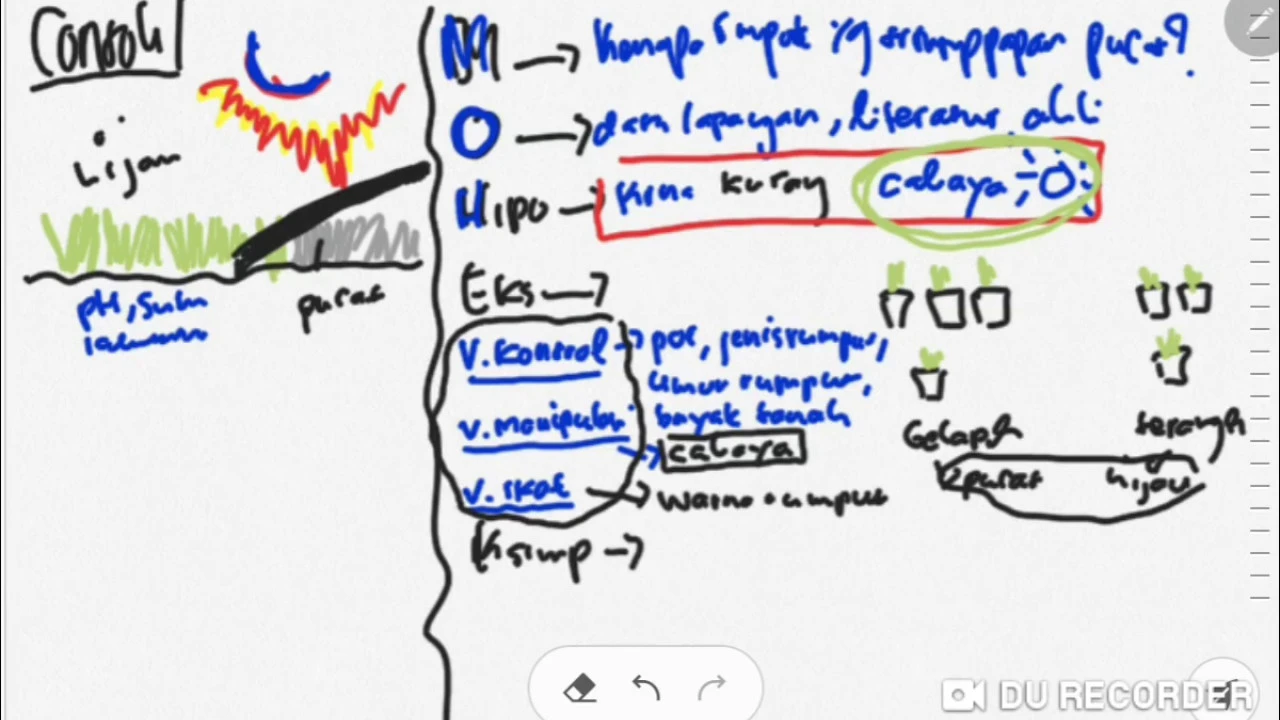 Contoh
hijau
pH, Suhu
pucat
M → Kenapa rumput yg terungppapan pucat?
O → dam lapangan, literatur, ahli
Hipo → Krna kurang cahaya
Eks →
V. Kontrol → pot, jenis rumput,
umur rumput,
bayak tanah
V. Manipulasi → cahaya
V. ikat → warna rumput
Gelap
terang
pucat
hijau
Ksimp →
DU RECORDER